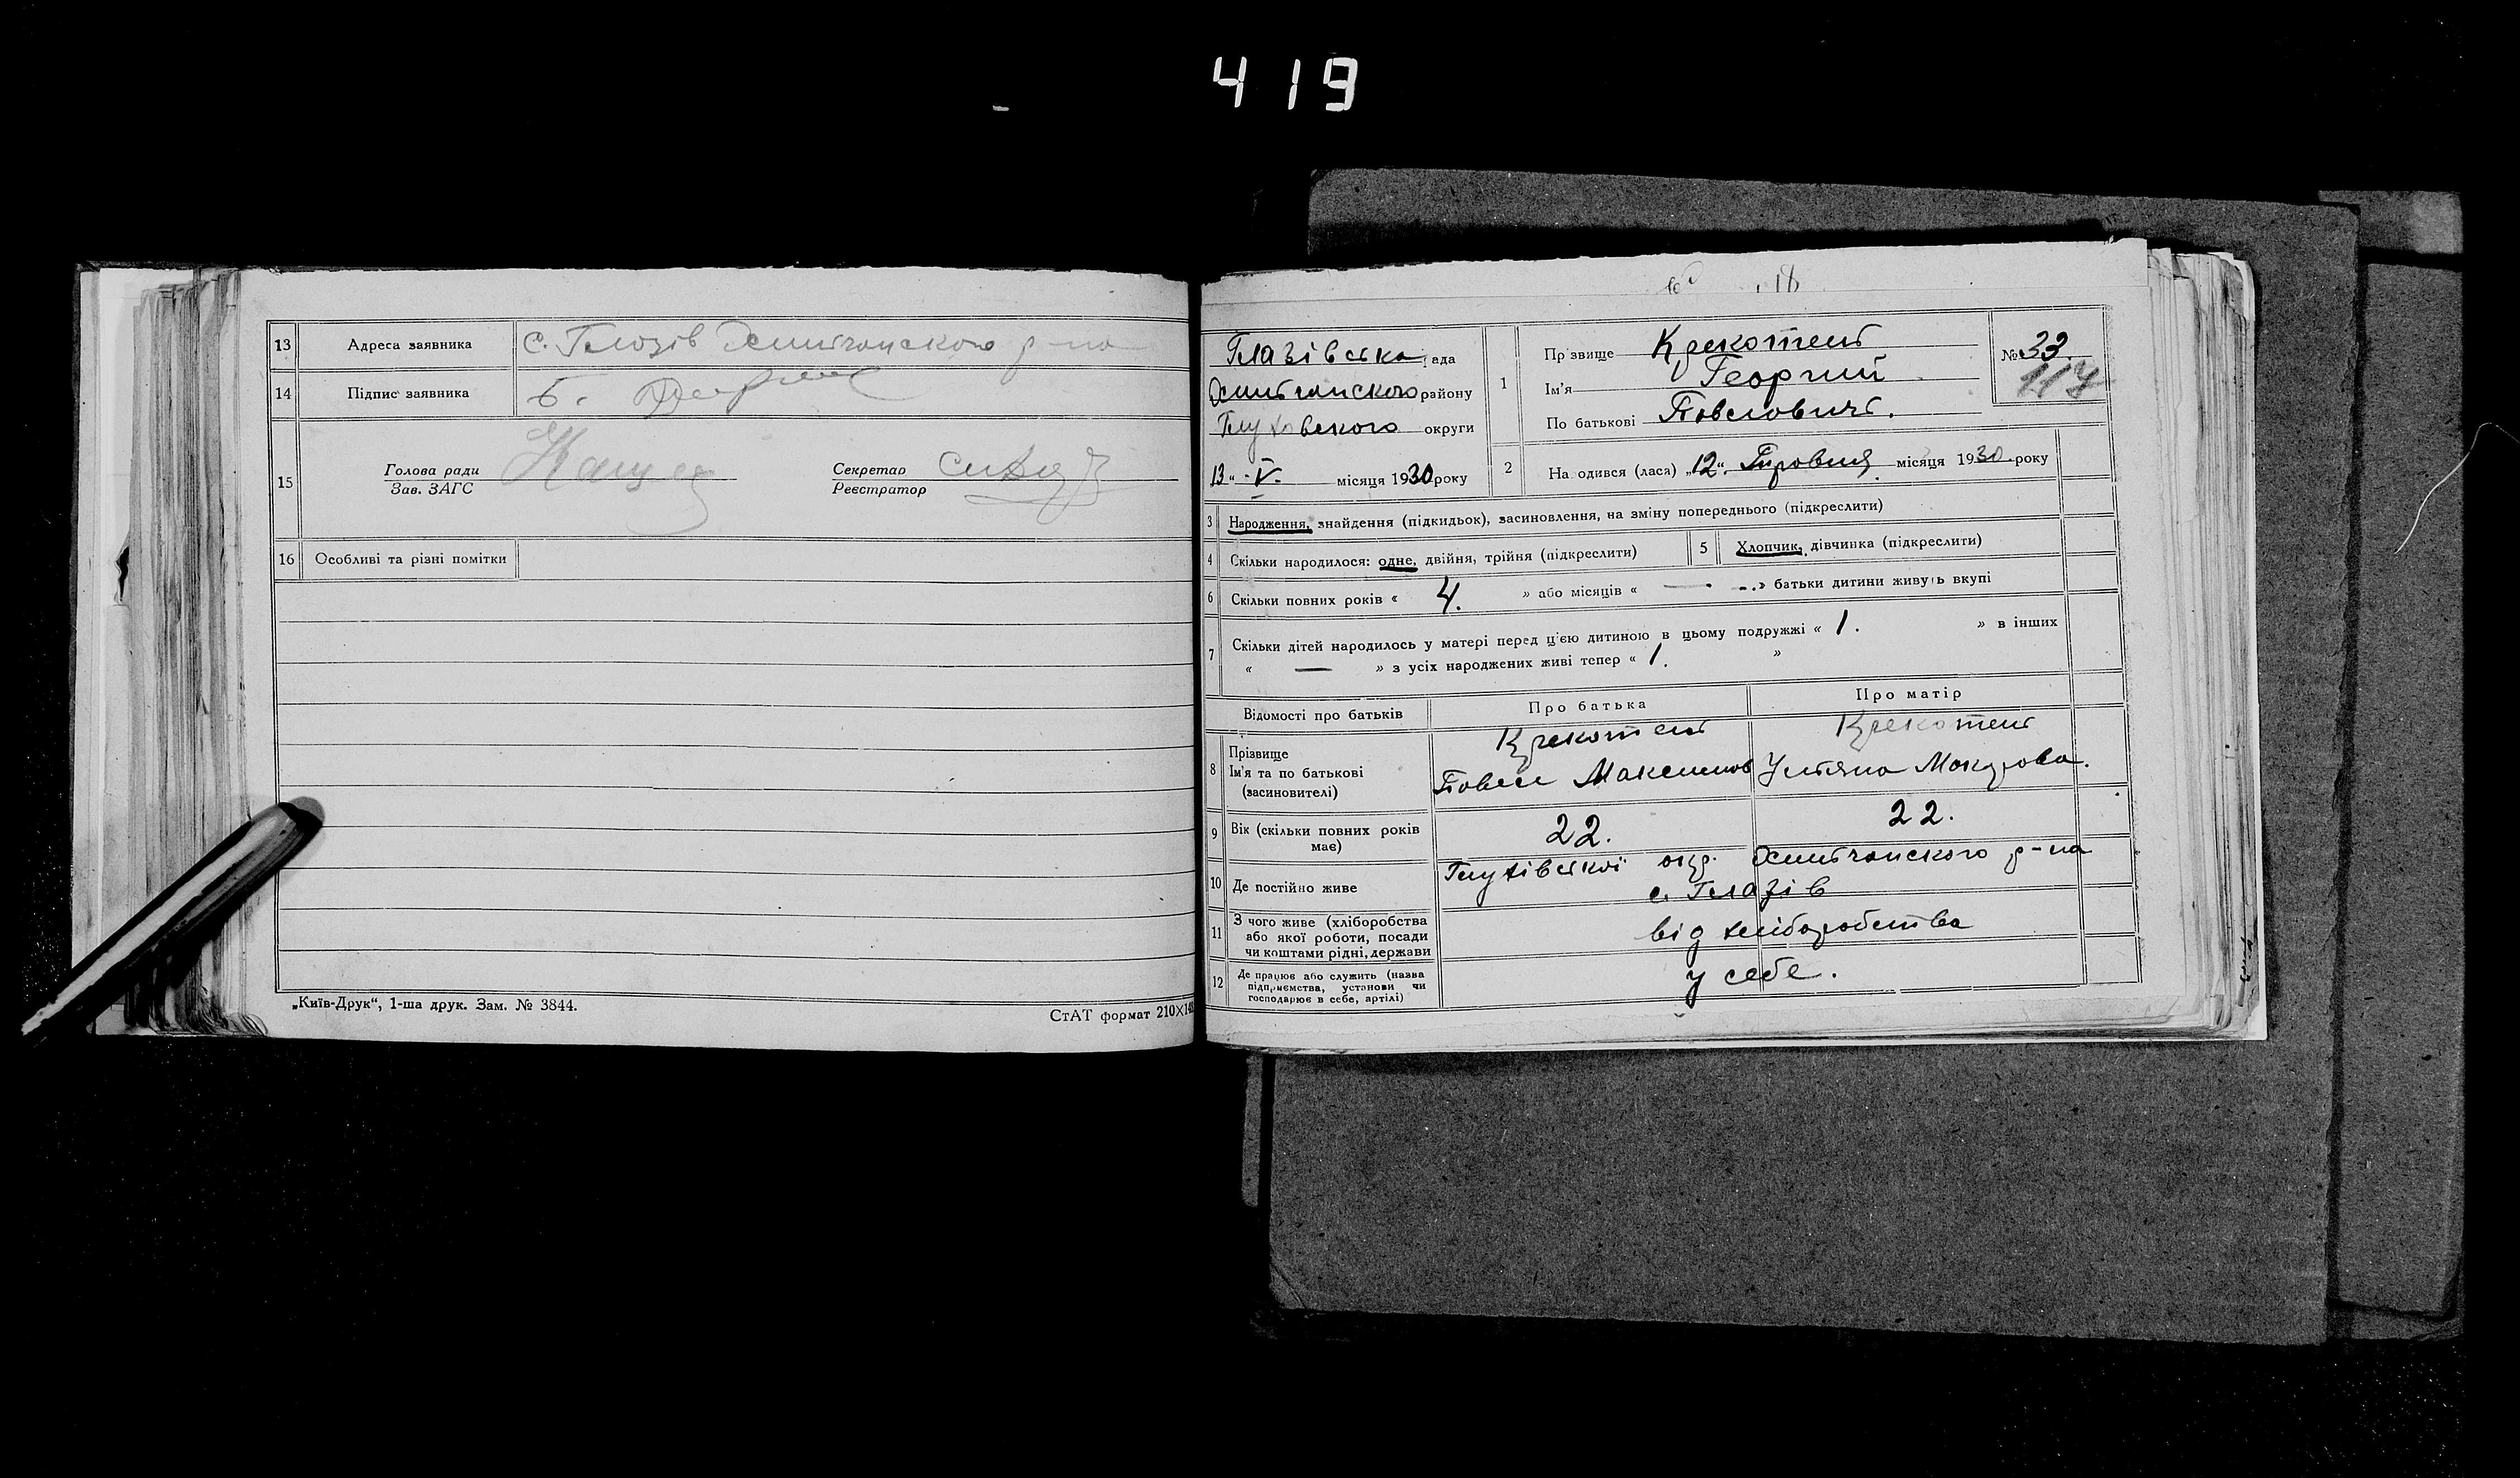 419
13 Адреса заявника с. Глозів Эсманського р-на
14 Підпис заявника Б.
15 Голова ради
Зав. ЗАГС
Секретар
Реєстратор
16 Особливі та різні помітки
„Київ-Друк“, 1-ша друк. Зам. № 3844.
СтАТ формат 210Х148
18
Глазівська рада
району
Глуховского округи
13 " V. місяця 1930 року
1 Прізвище Крекотень
Ім'я Георгий
По батькові Повлович.
№ 33.
117
2 На одився (лася) „12“ Тровня місяця 1930. року
3 Народження, знайдення (підкидьок), засиновлення, на зміну попереднього (підкреслити)
4 Скільки народилося: одне, двійня, трійня (підкреслити)
5 Хлопчик, дівчинка (підкреслити)
6 Скільки повних років « 4. » або місяців « — » батьки дитини живуть вкупі
7 Скільки дітей народилось у матері перед ц'єю дитиною в цьому подружжі « 1. » в інших
« — » з усіх народжених живі тепер « 1. »
Відомості про батьків Про батька Про матір
8 Прізвище Крекотень Крекотень
Ім'я та по батькові Повел Максимов Уляна Мокарова.
(засновителі)
9 Вік (скільки повних років має) 22. 22.
10 Де постійно живе Глухівської окр. р-на
с. Глазів
11 З чого живе (хліборобства або якої роботи, посади чи коштами рідні, держави від хліборобства
12 Де працює або служить (назва підприємства, установи чи господарює в себе, артілі) у себе.